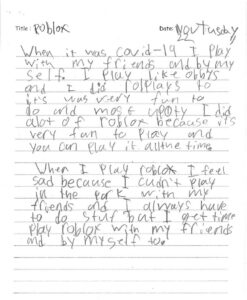 Title: roblox
Date: Nov Tusday
When it was covid-19 I play
with my friends and by my
self. I play like obbys
and I did rolplays to
it's was very fun to
do and most I did
alot of roblox because its
very fun to play and
you can play it all the time.
When I play roblox I feel
sad because I cudn't play
in the park with my
friends and I always have
to do stuf but I get time
play roblox with my friends
and by myself to.